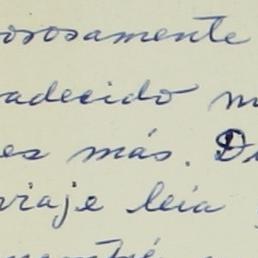 osamente
adecido m
es más. D
viaje leía